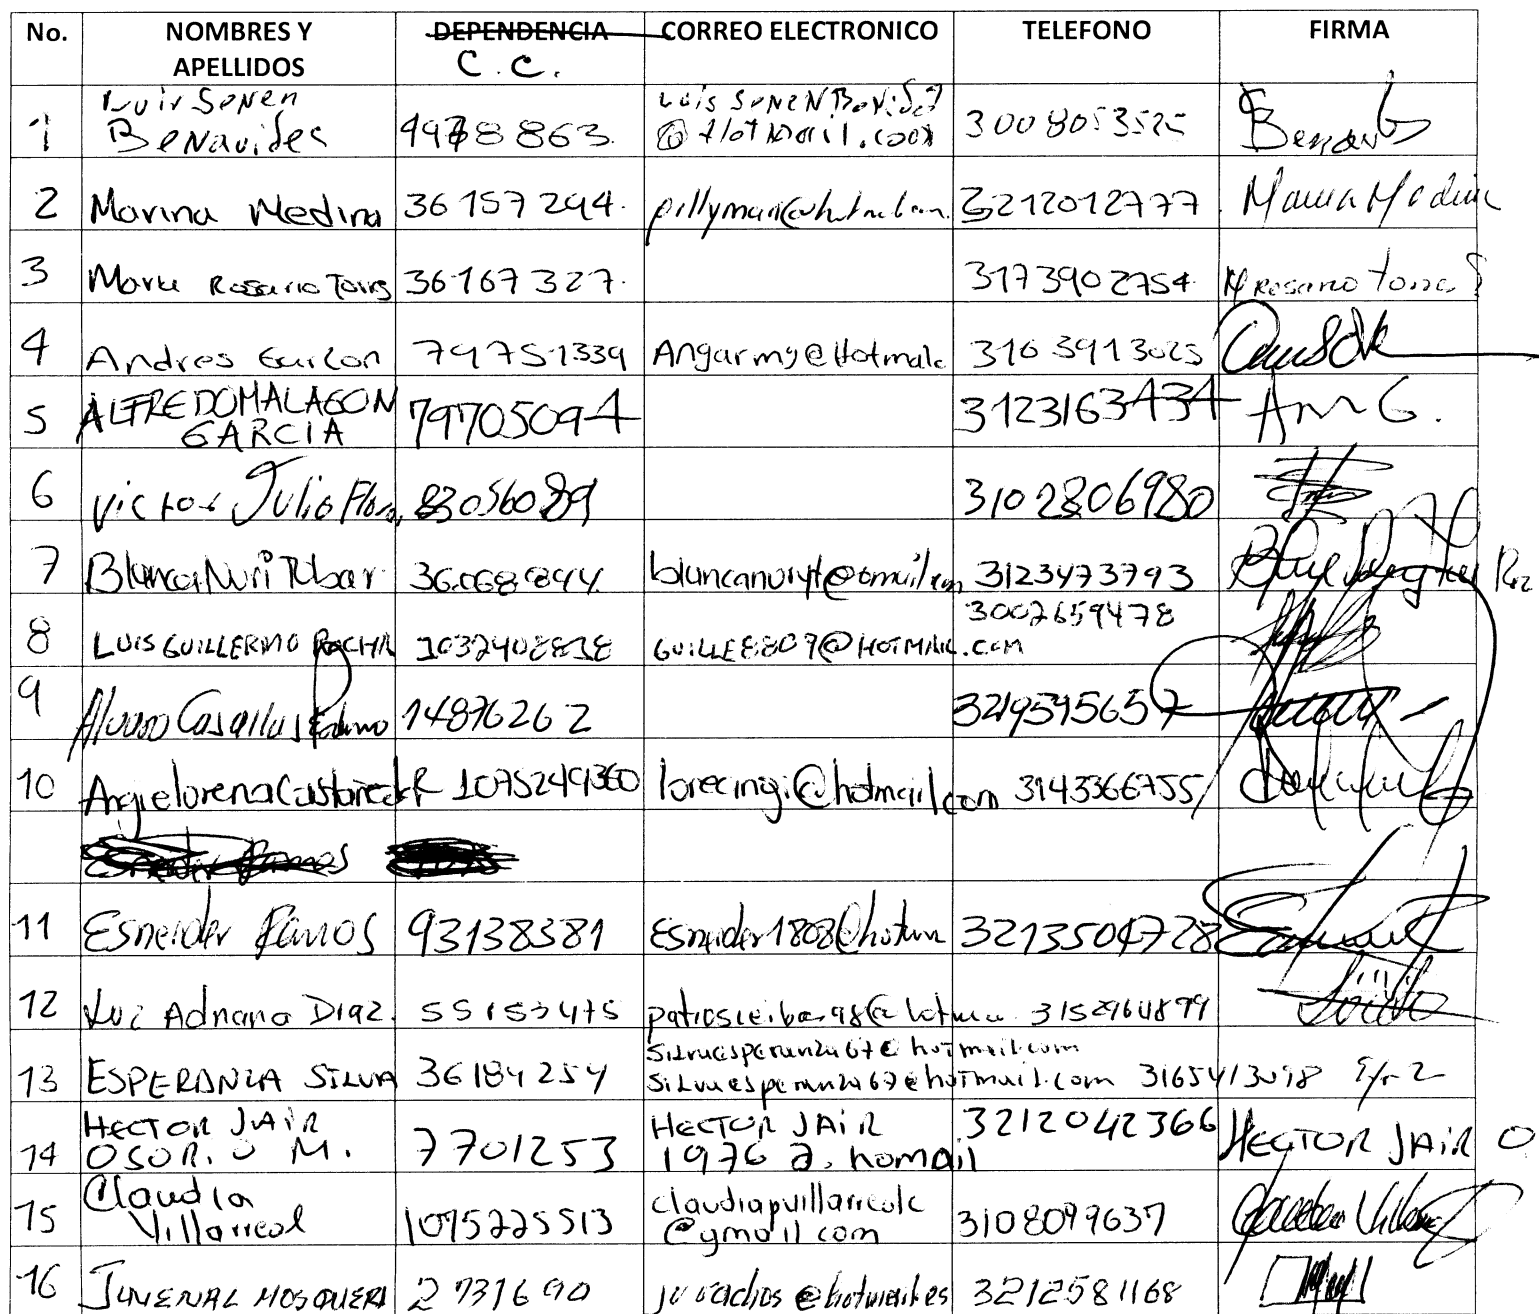 No. NOMBRES Y APELLIDOS DEPENDENCIA C.C. CORREO ELECTRONICO TELEFONO FIRMA
1 Luis Sonen Benavides 4978863. @Hotmail.com 3008053525 Benav
2 Marina Medina 36157294. 3212012777 Marina Medina
3 Maria Rosario Torres 36167327. 3173902754 M Rosario Torres
4 Andres Garzon 79751339 Angarmy@Hotmail 3103913025
5 ALFREDO MALAGON GARCIA 79705094 3123163434 Am G.
6 Victor Julio Flores 83056089 3102806980
7 Blanca Nuri Tobar 36068894 3123473793
8 LUIS GUILLERMO ROCHA 1032408838 GUILLE8809@HOTMAIL.COM 3002659478
9 Alvaro Casallas 14876262 3219595657
10 Angie Lorena Castañeda R 1075249360 loreangi@hotmail.com 3143366755
Esneider Ramos
11 Esneider Ramos 93138381 Esneider1808@hotm 3213504728
12 Luz Adriana Diaz. 55153475 3152964899
13 ESPERANZA SILVA 36184254 silvaesperanza67@hotmail.com
silvaesperanza67@hotmail.com 3165413098
14 HECTOR JAIR OSORIO M. 7701253 HECTOR JAIR 1976 a. homail 3212042366 HECTOR JAIR O
15 Claudia Villarreal 1075225513 claudiapvillarreale @gmail.com 3108099637 Claudia Villarreal
16 JUVENAL MOSQUERA 2731690 juvachos@hotmail.es 3212581168